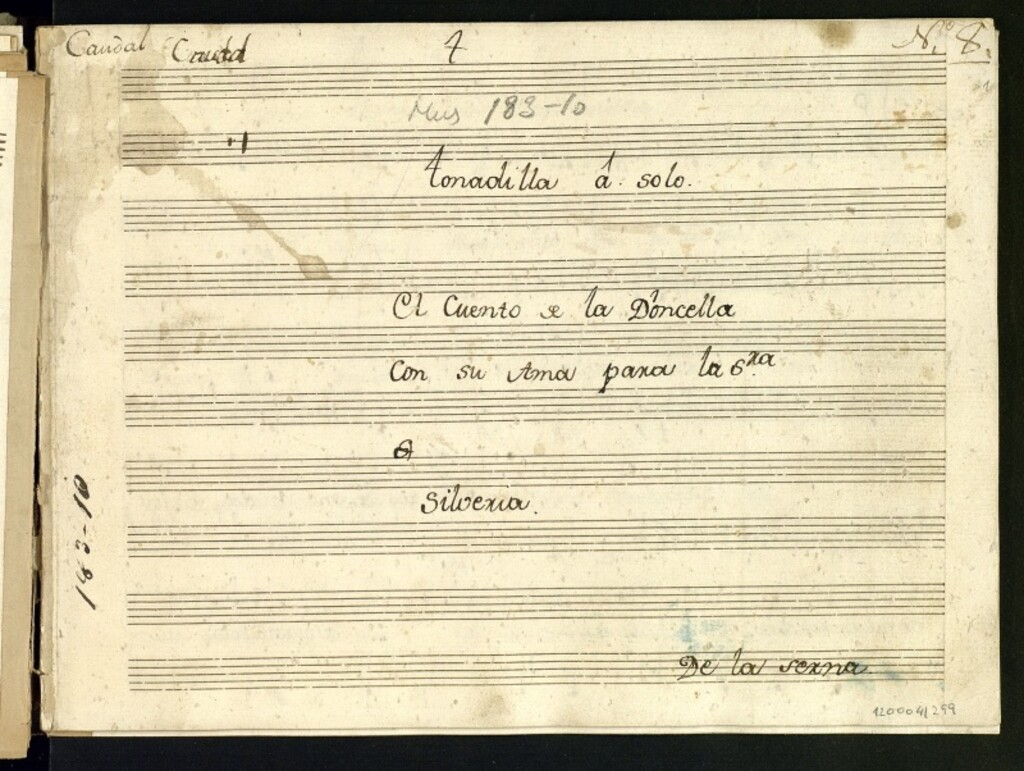 Caudal
4
N.º 8.
Mus 183-10
tonadilla á solo.
El Cuento de la Doncella
Con su Ama para la S.ra
Silveria.
183-10
De la serna
1200041299